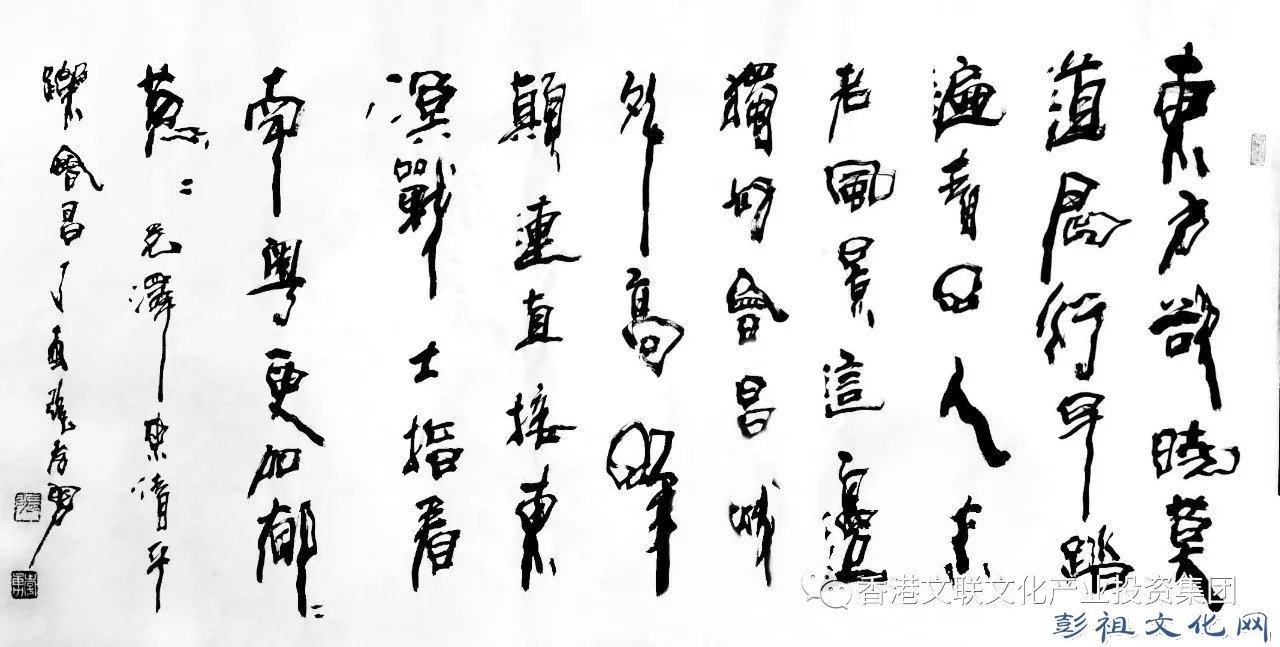 東方欲曉莫
道君行早踏
遍青山人未
老風景這邊
獨好會昌城
外高峰
顛連直接東
溟戰士指看
南粵更加郁〻
蔥〻毛澤東清平
樂會昌丁酉張
香港文联文化产业投资集团
彭祖文化网